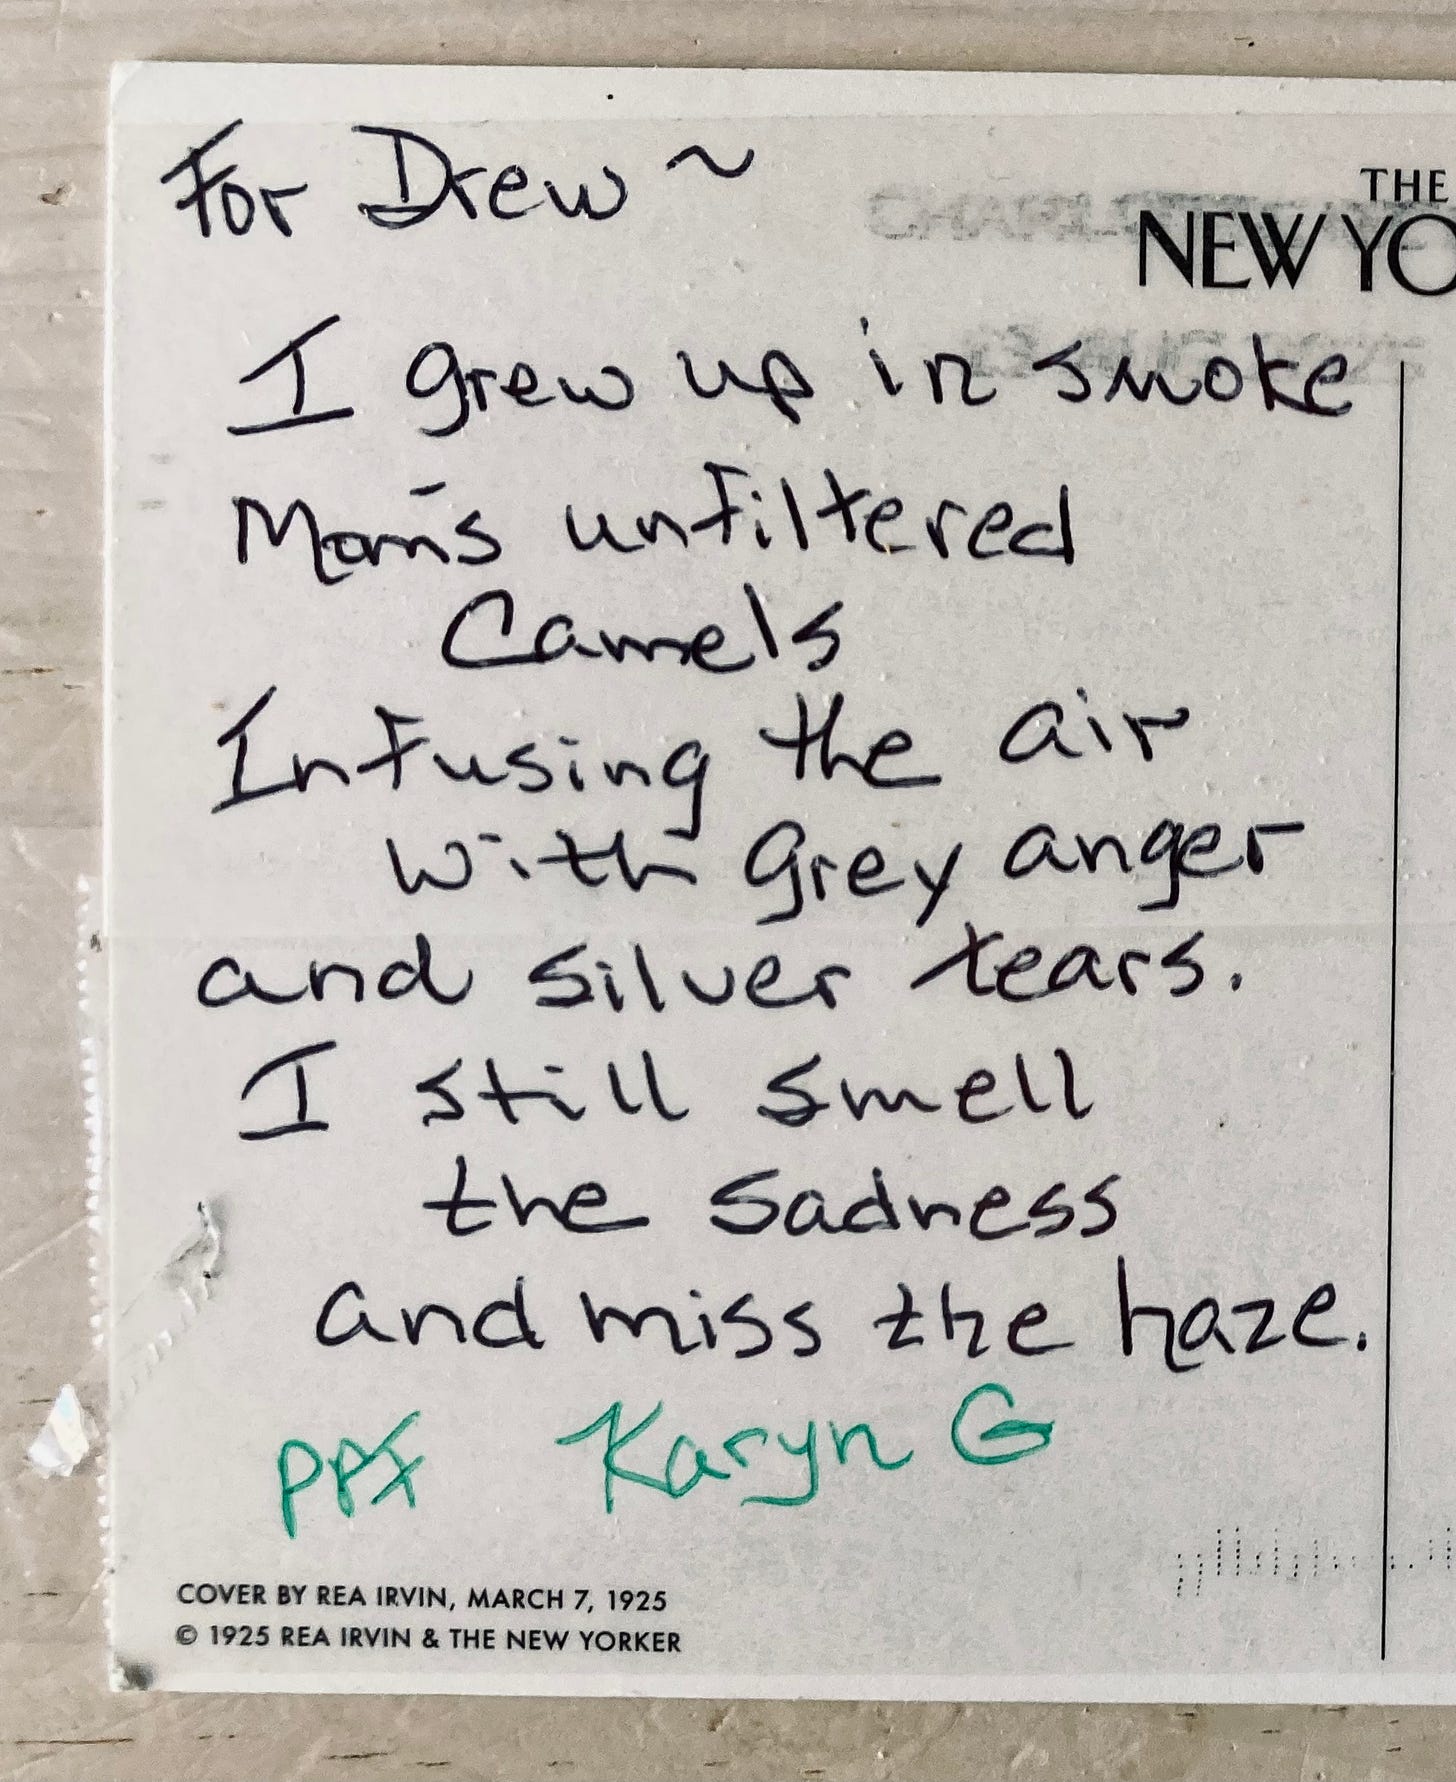 For Drew ~
THE
NEW YO
I grew up in smoke
Mom's unfiltered
Camels
Infusing the air
with grey anger
and silver tears.
I still smell
the sadness
and miss the haze.
PPF Karyn G
COVER BY REA IRVIN, MARCH 7, 1925
© 1925 REA IRVIN & THE NEW YORKER